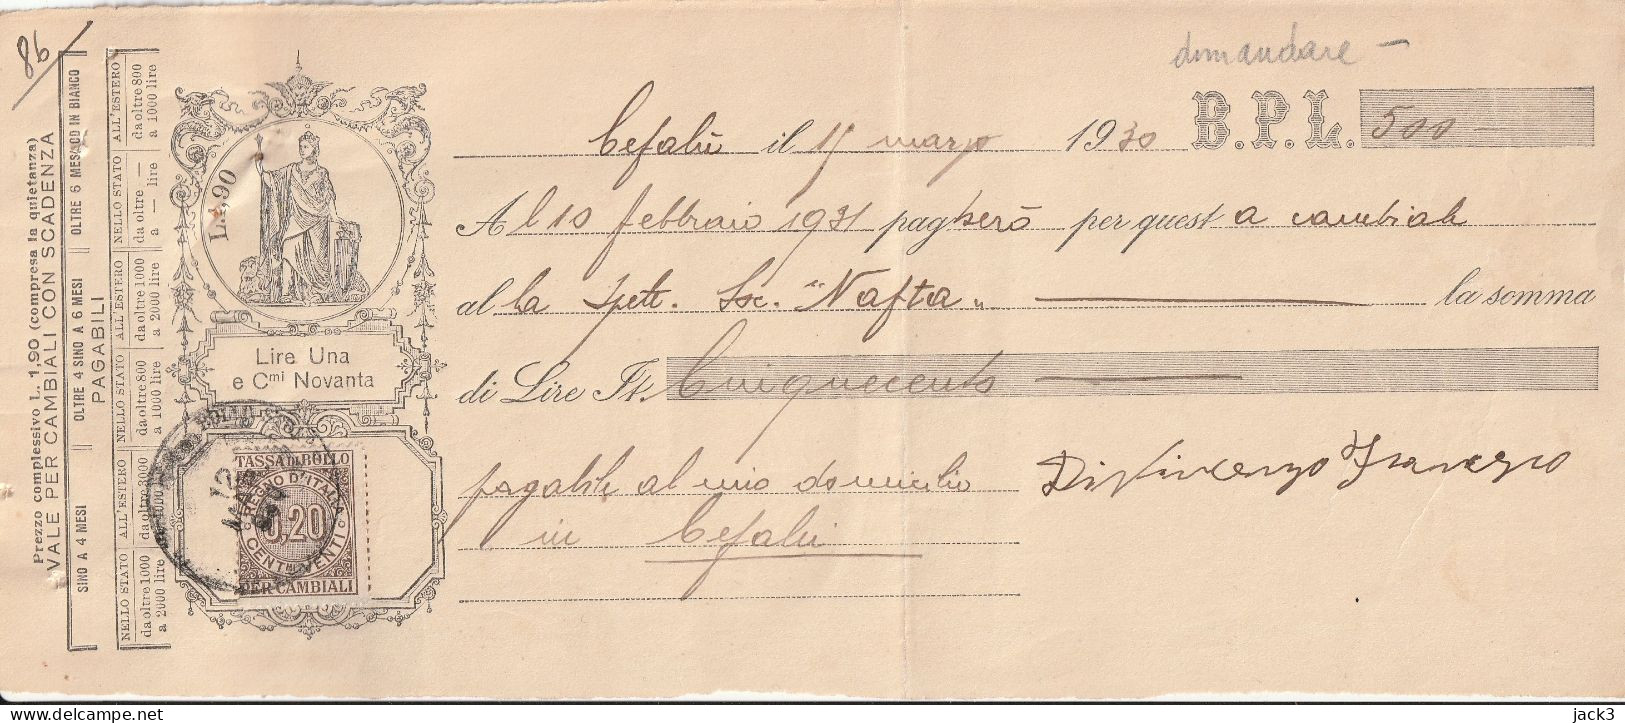 86
Prezzo complessivo L. 1,90 (compresa la quietanza)
VALE PER CAMBIALI CON SCADENZA
SINO A 4 MESI
OLTRE 4 SINO A 6 MESI
OLTRE 6 MESI O IN BIANCO
PAGABILI
NELLO STATO
da oltre 1000
a 2000 lire
ALL'ESTERO
da oltre 3000
a 4000 lire
NELLO STATO
da oltre 800
a 1000 lire
ALL'ESTERO
da oltre 1000
a 2000 lire
NELLO STATO
da oltre —
a — lire
ALL'ESTERO
da oltre 800
a 1000 lire
L. 1,90
Lire Una
e Cmi Novanta
TASSA DI BOLLO
REGNO D'ITALIA
0,20
CENTMI VENTI
PER CAMBIALI
domandare —
Cefalù il marzo 1930 B.P.L. 500 —
Al 10 febbraio 1931 pagherò per questa cambiale
alla Spett. Soc. "Nafta" la somma
di Lire It. Cinquecento
pagabile al mio domicilio
in Cefalù
Di Vincenzo Francesco
www.delcampe.net
jack3